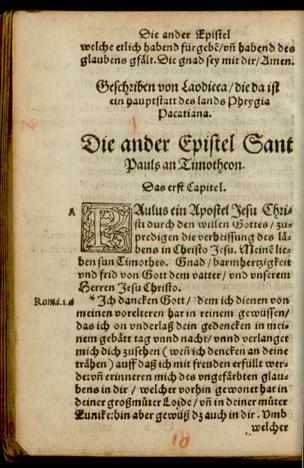 Die ander Epistel
welche etlich habend fürgebẽ/vñ habend des
glaubens gfält. Die gnad sey mit dir/Amen.
Geschriben von Laodicea/die da ist
ein hauptstatt des lands Phrygia
Pacatiana.
Die ander Epistel Sant
Pauls an Timotheon.
Das erst Capitel.
A
PAulus ein Apostel Jesu Chri-
sti durch den willen Gottes/zu-
predigen die verheissung des lä-
bens in Christo Jesu. Meinẽ lie-
ben sun Timotheo. Gnad/barmhertzigkeit
vnd frid von Gott dem vatter/vnd vnserem
Herren Jesu Christo.
Romã.1.a
*Ich dancken Gott/dem ich dienen von
meinen vorelteren har in reinem gewüssen/
das ich on vnderlaß dein gedencken in mei-
nem gebätt tag vnnd nacht/vnnd verlanget
mich dich zusehen (weñ ich dencken an deine
trähen) auff daß ich mit freuden erfüllt wer-
de: vñ erinneren mich des vngefärbten glau-
bens in dir/welcher vorhin gewonet hat in
deiner großmůter Loide/vñ in deiner můter
Eunike: bin aber gewüß dz auch in dir. Vmb
welcher